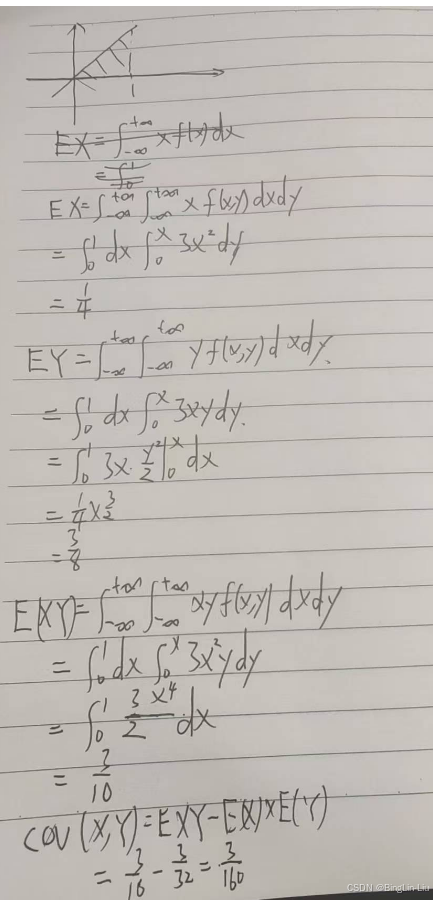 1
EX=∫_{-∞}^{+∞} x f(x) dx
= ∫_0^1
EX=∫_{-∞}^{+∞} ∫_{-∞}^{+∞} x f(x,y) dxdy
= ∫_0^1 dx ∫_0^x 3x² dy
= 1/4
EY = ∫_{-∞}^{+∞} ∫_{-∞}^{+∞} y f(x,y) dxdy.
= ∫_0^1 dx ∫_0^x 3xy dy.
= ∫_0^1 3x · y²/2 |_0^x dx
= 1/4 × 3/2
= 3/8
E(XY) = ∫_{-∞}^{+∞} ∫_{-∞}^{+∞} xy f(x,y) dxdy
= ∫_0^1 dx ∫_0^x 3x²y dy
= ∫_0^1 3x⁴/2 dx
= 3/10
cov(X,Y) = EXY - E(X)×E(Y)
= 3/10 - 3/32 = 3/160
CSDN @BingLin-Liu